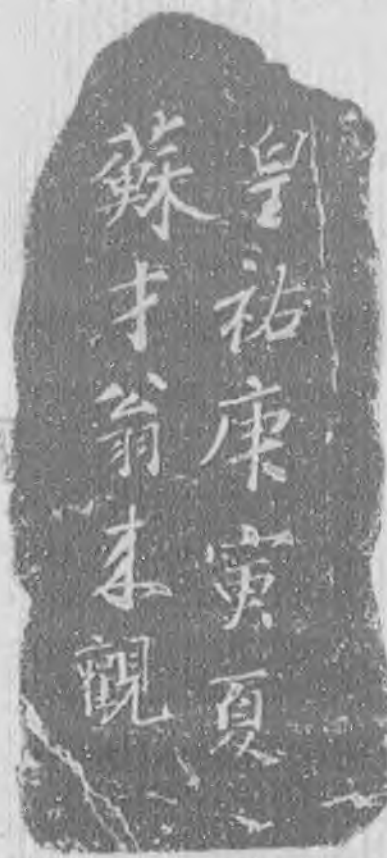 皇祐庚寅夏
蘇才翁来觀